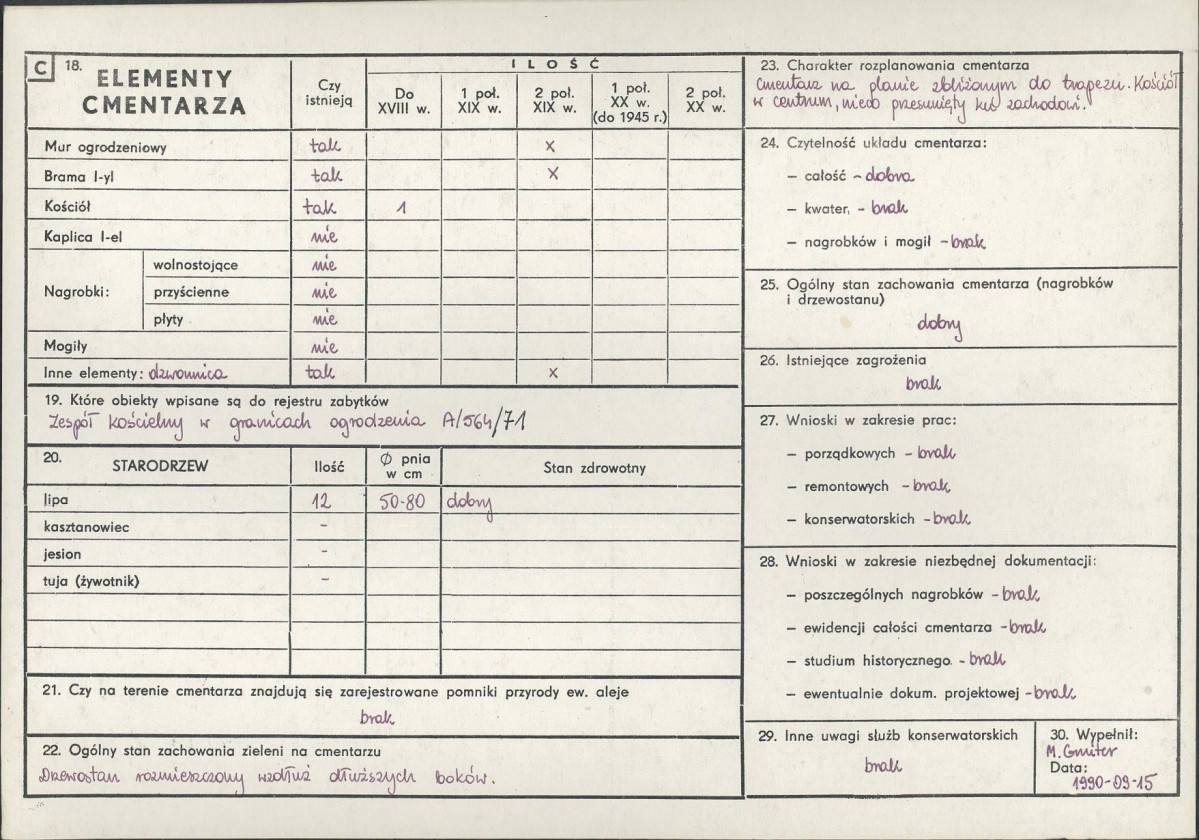 C 18. ELEMENTY CMENTARZA
Czy istnieją
ILOŚĆ
Do XVIII w.
1 poł. XIX w.
2 poł. XIX w.
1 poł. XX w. (do 1945 r.)
2 poł. XX w.
Mur ogrodzeniowy tak x
Brama I-yl tak x
Kościół tak 1
Kaplica I-el nie
Nagrobki:
wolnostojące nie
przyścienne nie
płyty nie
Mogiły nie
Inne elementy: dzwonnica tak x
19. Które obiekty wpisane są do rejestru zabytków
Zespół kościelny w granicach ogrodzenia A/564/71
20. STARODRZEW Ilość Ø pnia w cm Stan zdrowotny
lipa 12 50-80 dobry
kasztanowiec -
jesion -
tuja (żywotnik) -
21. Czy na terenie cmentarza znajdują się zarejestrowane pomniki przyrody ew. aleje
brak
22. Ogólny stan zachowania zieleni na cmentarzu
Drzewostan rozmieszczony wzdłuż dłuższych boków.
23. Charakter rozplanowania cmentarza
Cmentarz na planie zbliżonym do trapezu. Kościół
w centrum, nieco przesunięty ku zachodowi.
24. Czytelność układu cmentarza:
– całość – dobra
– kwater, – brak
– nagrobków i mogił – brak
25. Ogólny stan zachowania cmentarza (nagrobków
i drzewostanu)
dobry
26. Istniejące zagrożenia
brak
27. Wnioski w zakresie prac:
– porządkowych – brak
– remontowych – brak
– konserwatorskich – brak
28. Wnioski w zakresie niezbędnej dokumentacji:
– poszczególnych nagrobków – brak
– ewidencji całości cmentarza – brak
– studium historycznego. – brak
– ewentualnie dokum. projektowej – brak
29. Inne uwagi służb konserwatorskich
brak
30. Wypełnił:
M. Gmiter
Data:
1990-09-15